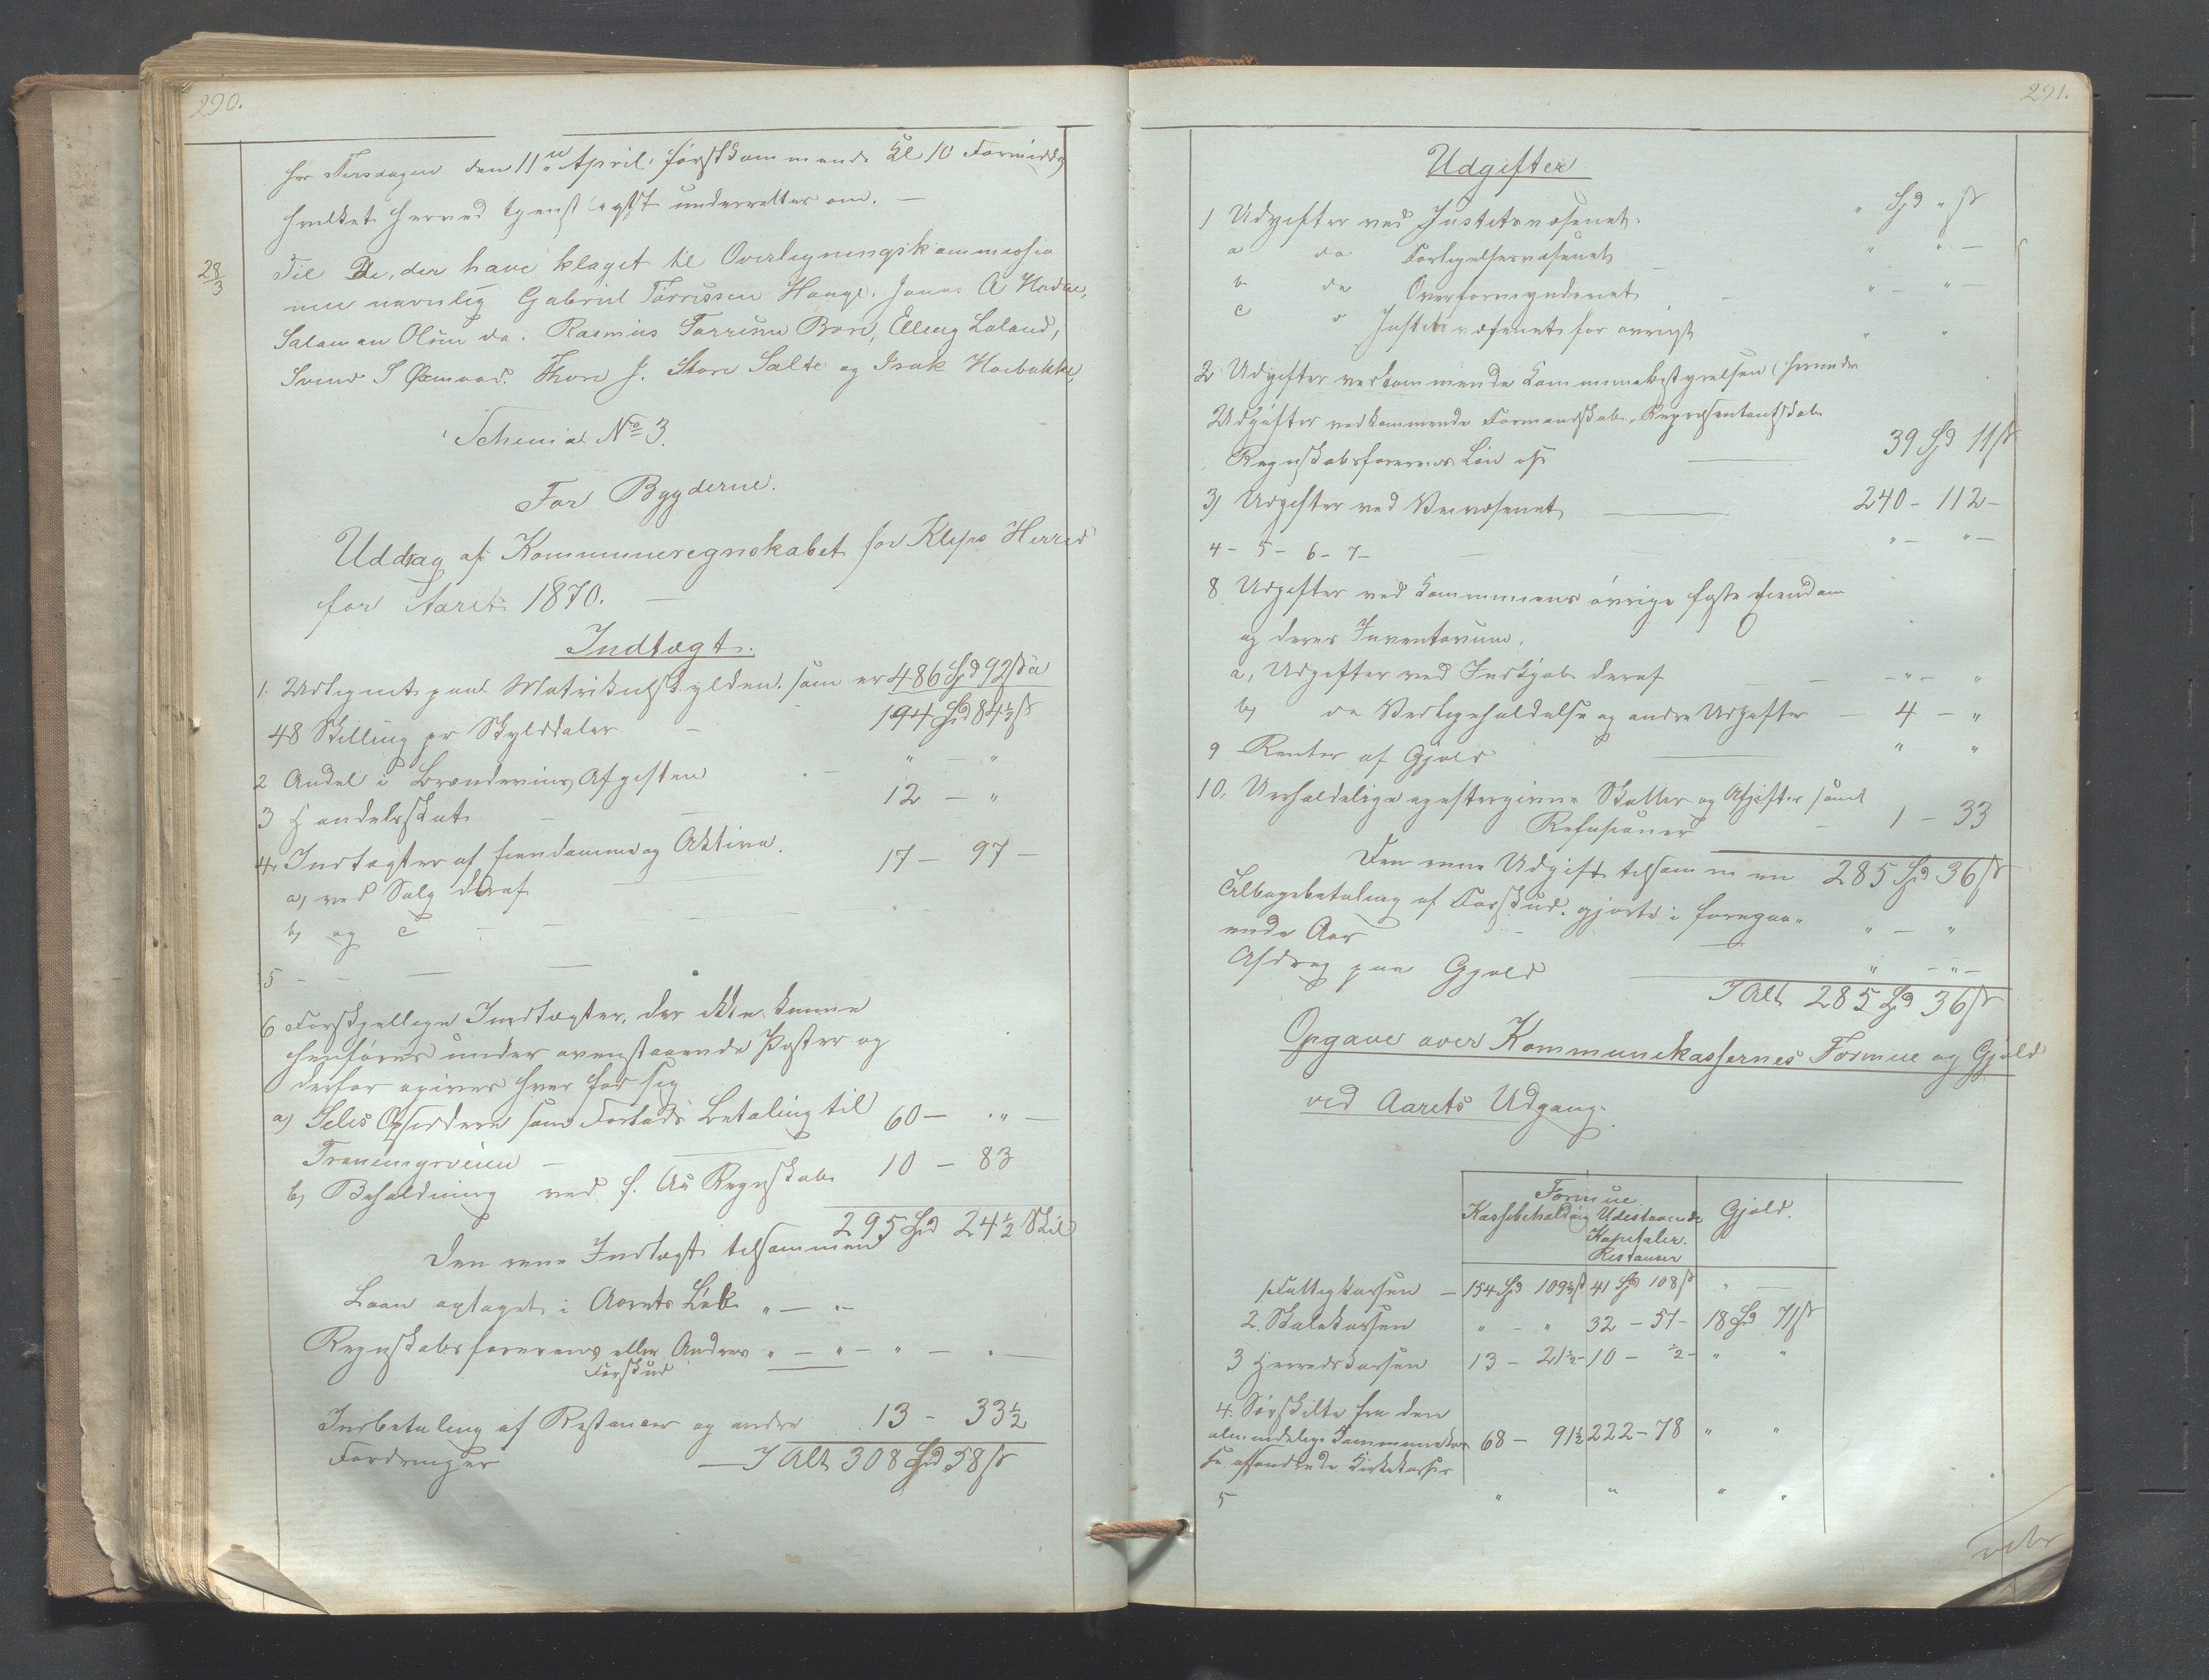 290.
her Tirsdagen den 11te April førstkommende Kl 10 Formiddg
hvilket herved tjenst underrettes om. —
28/3
Til De, der have klaget til Overligningskommissio
nen navnlig Gabriel Tørrissen Hauge. Jonas A Hodne,
Salamon Olsen do. Rasmus Tørrissen Bore, Elling Laland,
Svend S Øxnevad. Thore J. Store Salte og Isak Hoibakke,
Schema No 3.
For Bygderne.
Uddrag af Kommuneregnskabet for Klepp Herred
for Aaret 1870. —
Indtægt.
1. Udlignet paa Matrikulskylden. som er 486 Spd 92 ß a
48 Skilling pr Skylddaler — 194 Spd 84½ ß
2 Andel i Brændevins Afgiften . — " — "
3 Handelsskat — — 12 — "
4. Indtægter af Eiendomme og Aktiva.
a, ved Salg deraf — 17 — 97 —
b, og c — — — — " "
5 — — — —
6 Forskjellige Indtægter, der ikke kunne
henføres under ovenstaaende Poster og
derfor opgives hver for sig
a) Seles Opsiddere som Forlods Betaling til 60 — " —
b, Beholdning ved f. Aar Regnskab 10 — 83
295 Spd 24½ Skil
Den rene Indtægt tilsammen
Laan optaget i Aarets Løb " — " —
Regnskabsførerens eller Andres " — " — " — " —
Forskud
Indbetaling af Restancer og andre 13 — 33½
Fordringer — I Alt 308 Spd 58 ß
291.
Udgifter
" Spd " ß
1 Udgifter ved Justitsvæsenet.
a do Forligelsesvæsenet — " " —
b do Overformynderiet — " — " —
c " Justitsvæsenet for øvrigt " "
2 Udgifter vedkommende Kommunebestyrelsen (herunder
Udgifter vedkommende Formandskab, Repræsentantskab
Regnskabsførerens Løn osv — 39 Spd 11 ß
3, Udgifter ved Veivæsenet — 240 — 112 —
4 — 5 — 6 — 7 — " — " —
8 Udgifter ved Kommunens øvrige faste Eiendom
og deres Inventarium.
a, Udgifter ved Indkjøb deraf — — — " — "
b, do Vedligeholdelse og andre Udgifter — 4 — "
9 Renter af Gjæld — " "
10. Uerholdelige og eftergivne Skatter og Afgifter samt
Refusioner — 1 — 33
Den rene Udgift tilsammen 285 Spd 36 ß
Tilbagebetaling af Forskud. gjorte i foregaa-
ende Aar — " — "
Afdrag paa Gjæld — " — " —
I Alt 285 Spd 36 ß
Opgave over Kommunekassernes Formue og Gjæld
ved Aarets Udgang.
Formue
Kassebeholdning Udestaaende Gjæld.
Kapitaler.
Restancer
1. Fattigkassen — 154 Spd 109½ ß 41 Spd 108 ß " —
2. Skolekassen " — " 32 — 57 — 18 Spd 71 ß
3 Herredskassen 13 — 21½ — 10 — ½ — " "
4. Særskilte fra den
almindelige Kommunekas 68 — 91½ 222 — 78 " "
se afsondrede Kirkekasser
5 " " " "